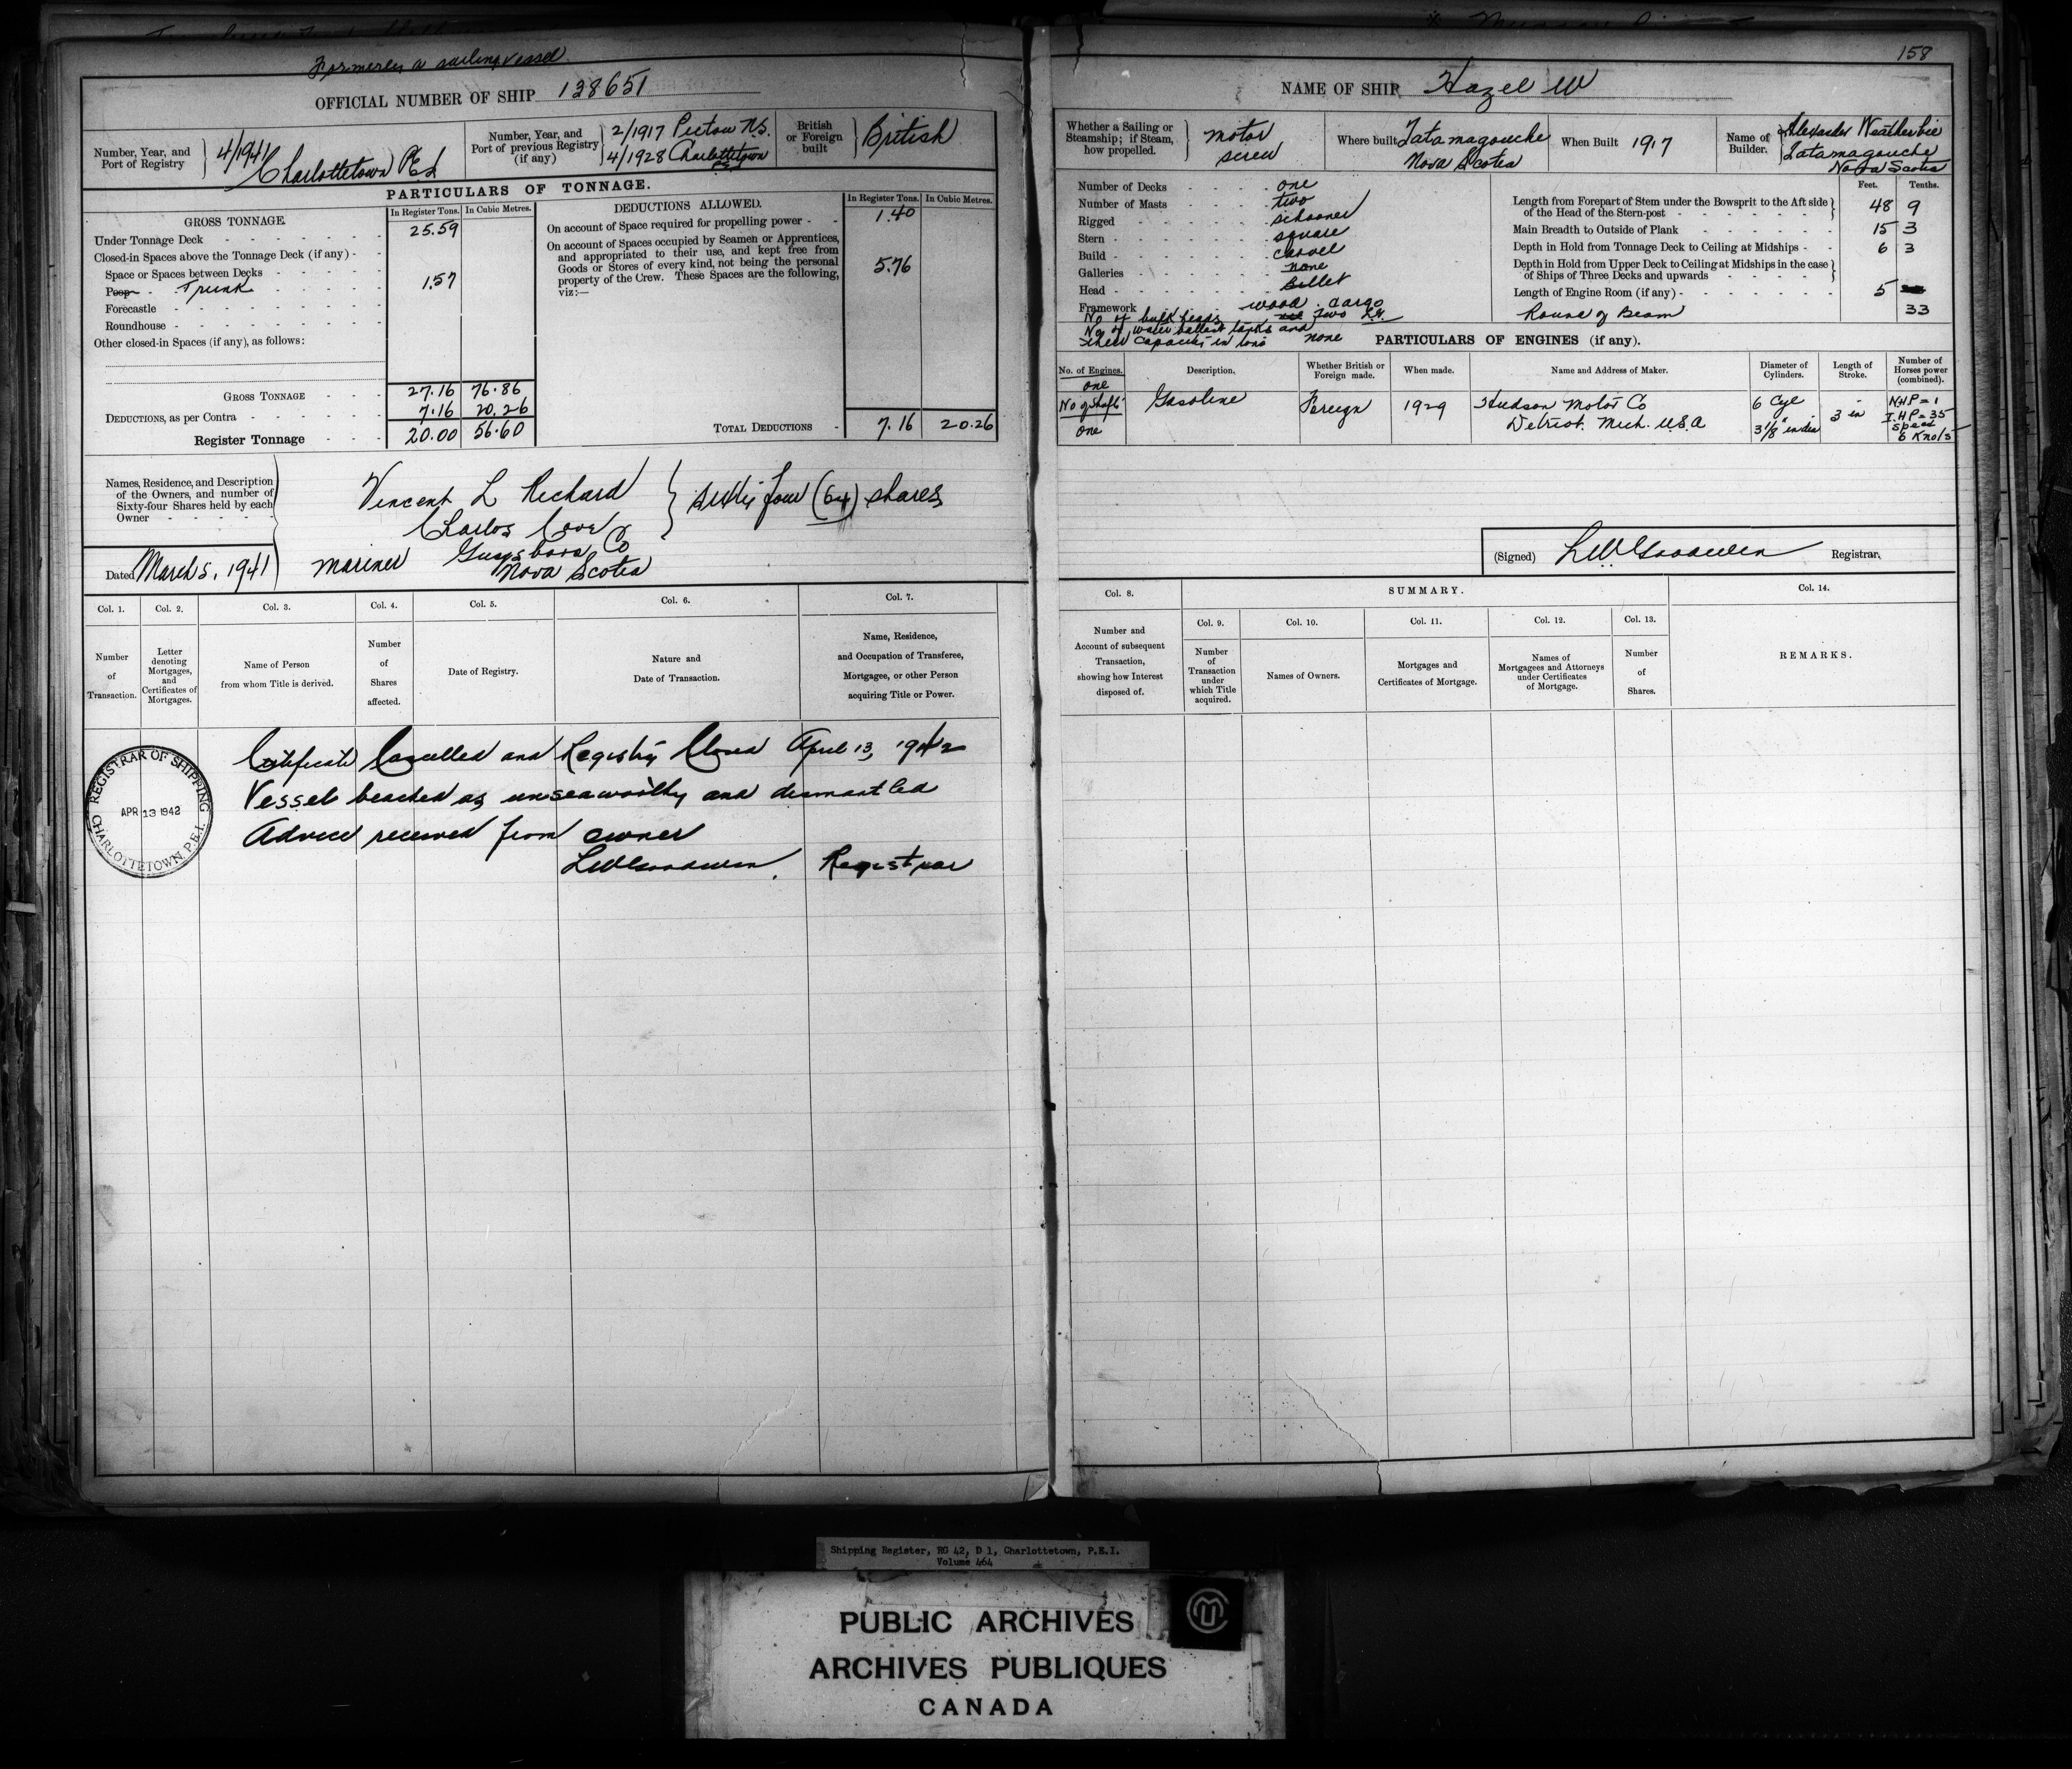 Formerly a sailing vessel
OFFICIAL NUMBER OF SHIP 138651
Number, Year, and Port of Registry
4/1941 Charlottetown PEI
Number, Year, and Port of previous Registry (if any)
2/1917 Pictou N.S.
4/1928 Charlottetown PEI
British or Foreign built
British
PARTICULARS OF TONNAGE.
GROSS TONNAGE. In Register Tons. In Cubic Metres.
Under Tonnage Deck 25.59
Closed-in Spaces above the Tonnage Deck (if any) -
Space or Spaces between Decks
Poop Trunk 1.57
Forecastle
Roundhouse
Other closed-in Spaces (if any), as follows:
GROSS TONNAGE 27.16 76.86
DEDUCTIONS, as per Contra 7.16 20.26
Register Tonnage 20.00 56.60
DEDUCTIONS ALLOWED. In Register Tons. In Cubic Metres.
On account of Space required for propelling power - - 1.40
On account of Spaces occupied by Seamen or Apprentices,
and appropriated to their use, and kept free from
Goods or Stores of every kind, not being the personal 5.76
property of the Crew. These Spaces are the following,
viz:—
TOTAL DEDUCTIONS 7.16 20.26
Names, Residence, and Description
of the Owners, and number of
Sixty-four Shares held by each
Owner
Vincent L Richard
Charlos Cove
Guysboro Co
Nova Scotia
mariner
sixty four (64) shares
Dated March 5, 1941
Col. 1. Col. 2. Col. 3. Col. 4. Col. 5. Col. 6. Col. 7.
Number of Transaction.
Letter denoting Mortgages, and Certificates of Mortgages.
Name of Person from whom Title is derived.
Number of Shares affected.
Date of Registry.
Nature and Date of Transaction.
Name, Residence, and Occupation of Transferee, Mortgagee, or other Person acquiring Title or Power.
Certificate Cancelled and Registry Closed April 13, 1942
Vessel beached as unseaworthy and dismantled
Advice received from owner
LW Goodwin, Registrar
REGISTRAR OF SHIPPING
APR 13 1942
CHARLOTTETOWN, P.E.I.
158
NAME OF SHIP Hazel W
Whether a Sailing or Steamship; if Steam, how propelled.
motor screw
Where built Tatamagouche Nova Scotia
When Built 1917
Name of Builder.
Alexander Weatherbie
Tatamagouche
Nova Scotia
Number of Decks one
Number of Masts two
Rigged schooner
Stern square
Build carvel
Galleries none
Head Billet
Framework wood
No of bulk heads two
No of water ballast tanks and
their capacity in tons none
Feet. Tenths.
Length from Forepart of Stem under the Bowsprit to the Aft side of the Head of the Stern-post 48 9
Main Breadth to Outside of Plank 15 3
Depth in Hold from Tonnage Deck to Ceiling at Midships - - 6 3
Depth in Hold from Upper Deck to Ceiling at Midships in the case of Ships of Three Decks and upwards
Length of Engine Room (if any) 5
Round of Beam 33
PARTICULARS OF ENGINES (if any).
No. of Engines. Description. Whether British or Foreign made. When made. Name and Address of Maker. Diameter of Cylinders. Length of Stroke. Number of Horses power (combined).
one
No of Shafts
one
Gasoline Foreign 1929
Hudson Motor Co
Detriot. Mich. U.S.A
6 Cyl
3 1/8" in dia
3 in
NHP = 1
I.HP = 35
Speed
6 Knots
(Signed) LW Goodwin Registrar.
Col. 8. SUMMARY. Col. 14.
Col. 9. Col. 10. Col. 11. Col. 12. Col. 13.
Number and Account of subsequent Transaction, showing how Interest disposed of.
Number of Transaction under which Title acquired.
Names of Owners.
Mortgages and Certificates of Mortgage.
Names of Mortgagees and Attorneys under Certificates of Mortgage.
Number of Shares.
REMARKS.
Shipping Register, RG 42, D 1, Charlottetown, P.E.I.
Volume 464
PUBLIC ARCHIVES
ARCHIVES PUBLIQUES
CANADA